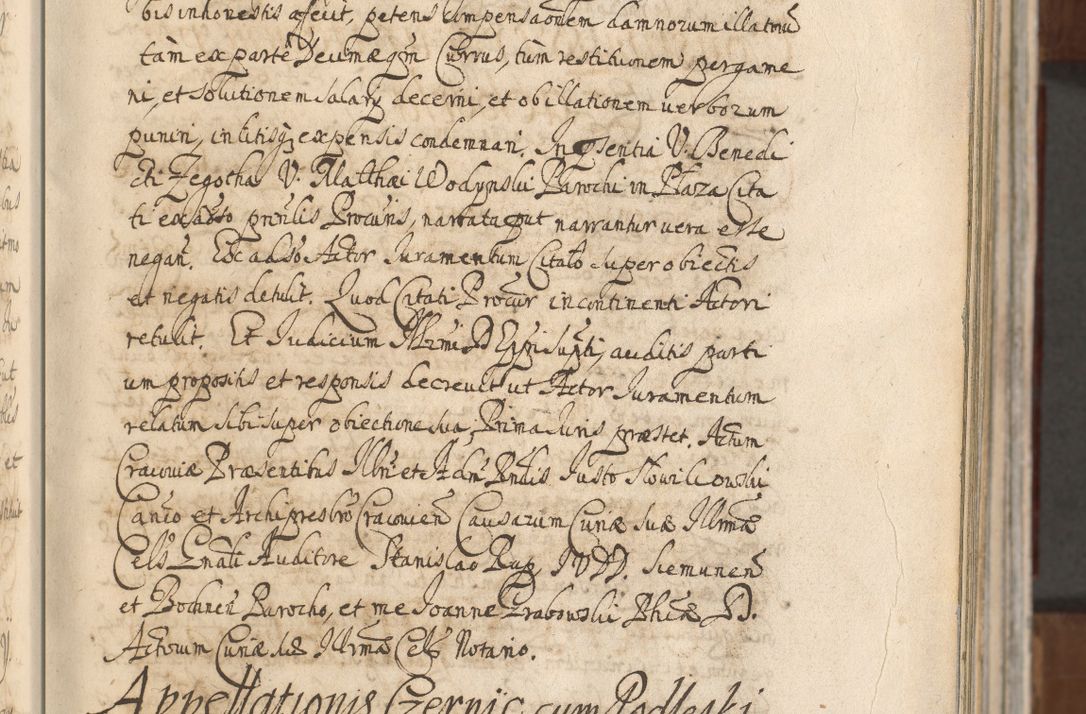 bis inhonestis affecit, petens Compensaōnem damnorum illatorū
tàm ex parte Deumæqm̄ Currus, tùm restitutionem pergame
ni, et solutionem salarÿ decerni, et ob illationem verborum
puniri, in litisq; expensis condemnari. In pn̄sentia V. Benedi
cti Zegotha V. Matthæi Wodynski Parochi in Plaza Cita
ti ex actō prn̄lis Procuris, narrata put narrantur vera esse
negan̄. Et adsō Actor Iuramentum Citato super obiectis
et negatis detulit. Quod Citati Procur̄ incontinenti Actori
retulit. Et Iudicium Illrm̄i D Epp̄i supti, auditis parti
um propositis et responsis decrevit ut Actor Iuramentum
relatum sibi super obiectione sua, Prima Iuris præstet. Actum
Cracoviæ Præsentibus Illri et Adm̄ Rn̄dis Iusto Słowikowski
Canco et Archipresbro Cracovien̄ Causarum Curiæ suæ Illrmæ
Cels Gn̄ali Auditore Stanislao Rup, IVDD. Siemunen̄
et Bochnen̄ Parocho, et me Ioanne Grabowski Phiæ D.
Actorum Curiæ suæ Illrmæ Cels Notario.
Appellationis Czernic cum Podleski